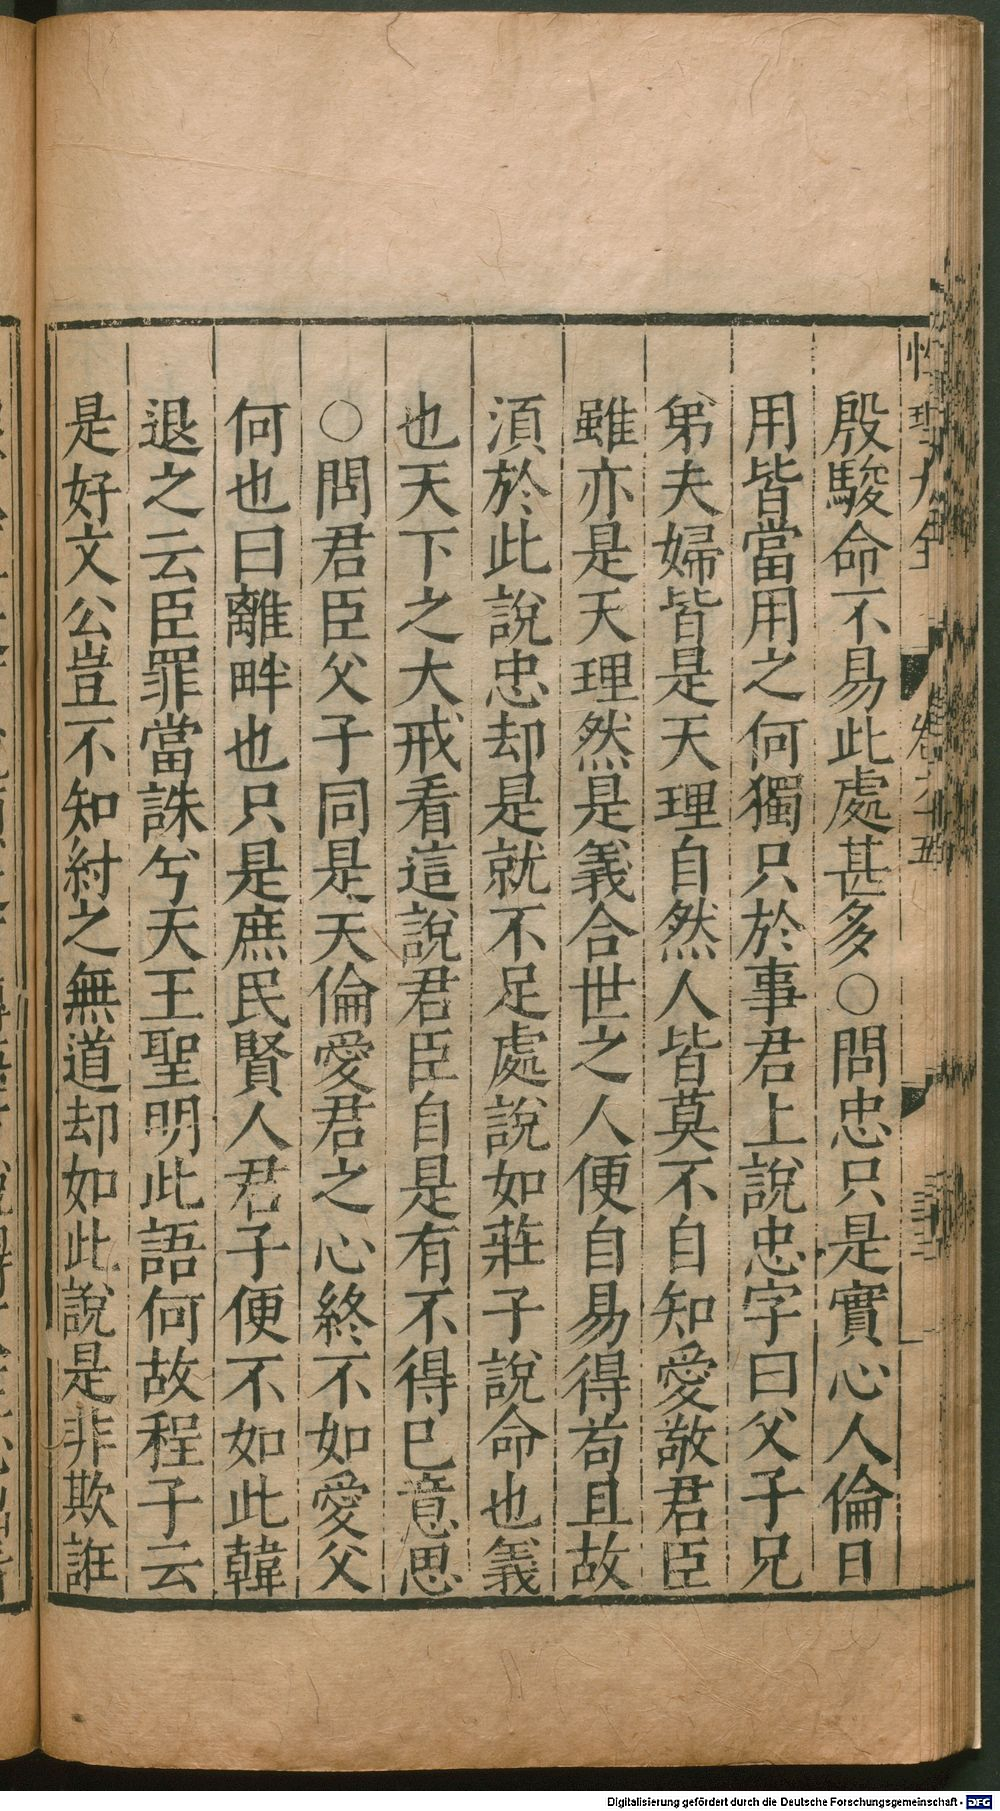 性理大全 卷六十五
殷駿命不易此處甚多○問忠只是實心人倫日
用皆當用之何獨只於事君上說忠字曰父子兄
弟夫婦皆是天理自然人皆莫不自知愛敬君臣
雖亦是天理然是義合世之人便自易得苟且故
須於此說忠却是就不足處說如莊子說命也義
也天下之大戒看這說君臣自是有不得已意思
○問君臣父子同是天倫愛君之心終不如愛父
何也曰離畔也只是庶民賢人君子便不如此韓
退之云臣罪當誅兮天王聖明此語何故程子云
是好文公豈不知紂之無道却如此說是非欺誑
Digitalisierung gefördert durch die Deutsche Forschungsgemeinschaft - DFG